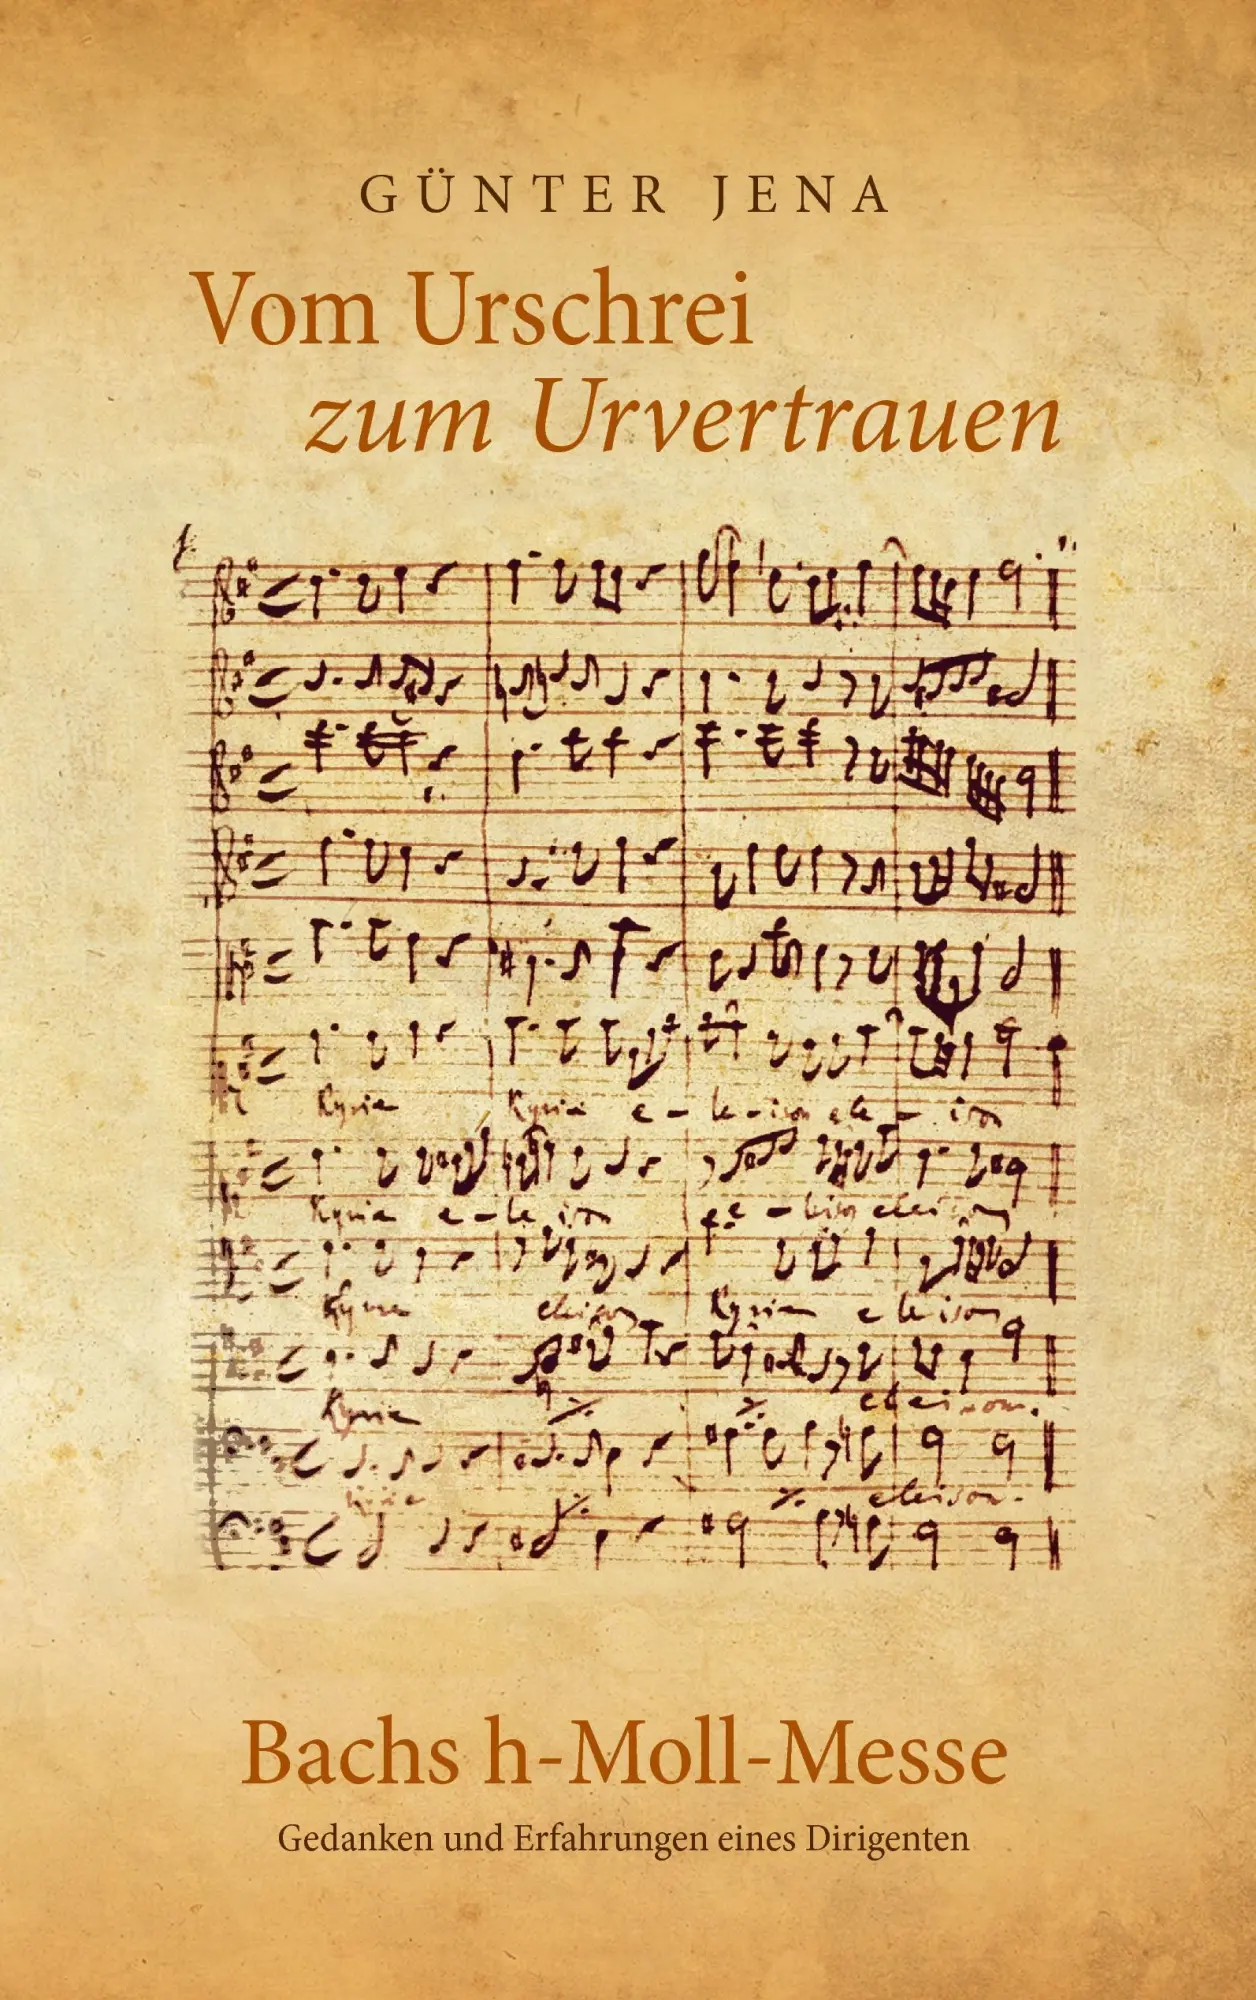 GÜNTER JENA
Vom Urschrei
zum Urvertrauen
Kyrie Kyrie e - le - ison ele - ison
Kyrie e - le ison e - leison eleison
Kyrie eleison Kyrie eleison
Kyrie eleison.
eleison.
Bachs h-Moll-Messe
Gedanken und Erfahrungen eines Dirigenten